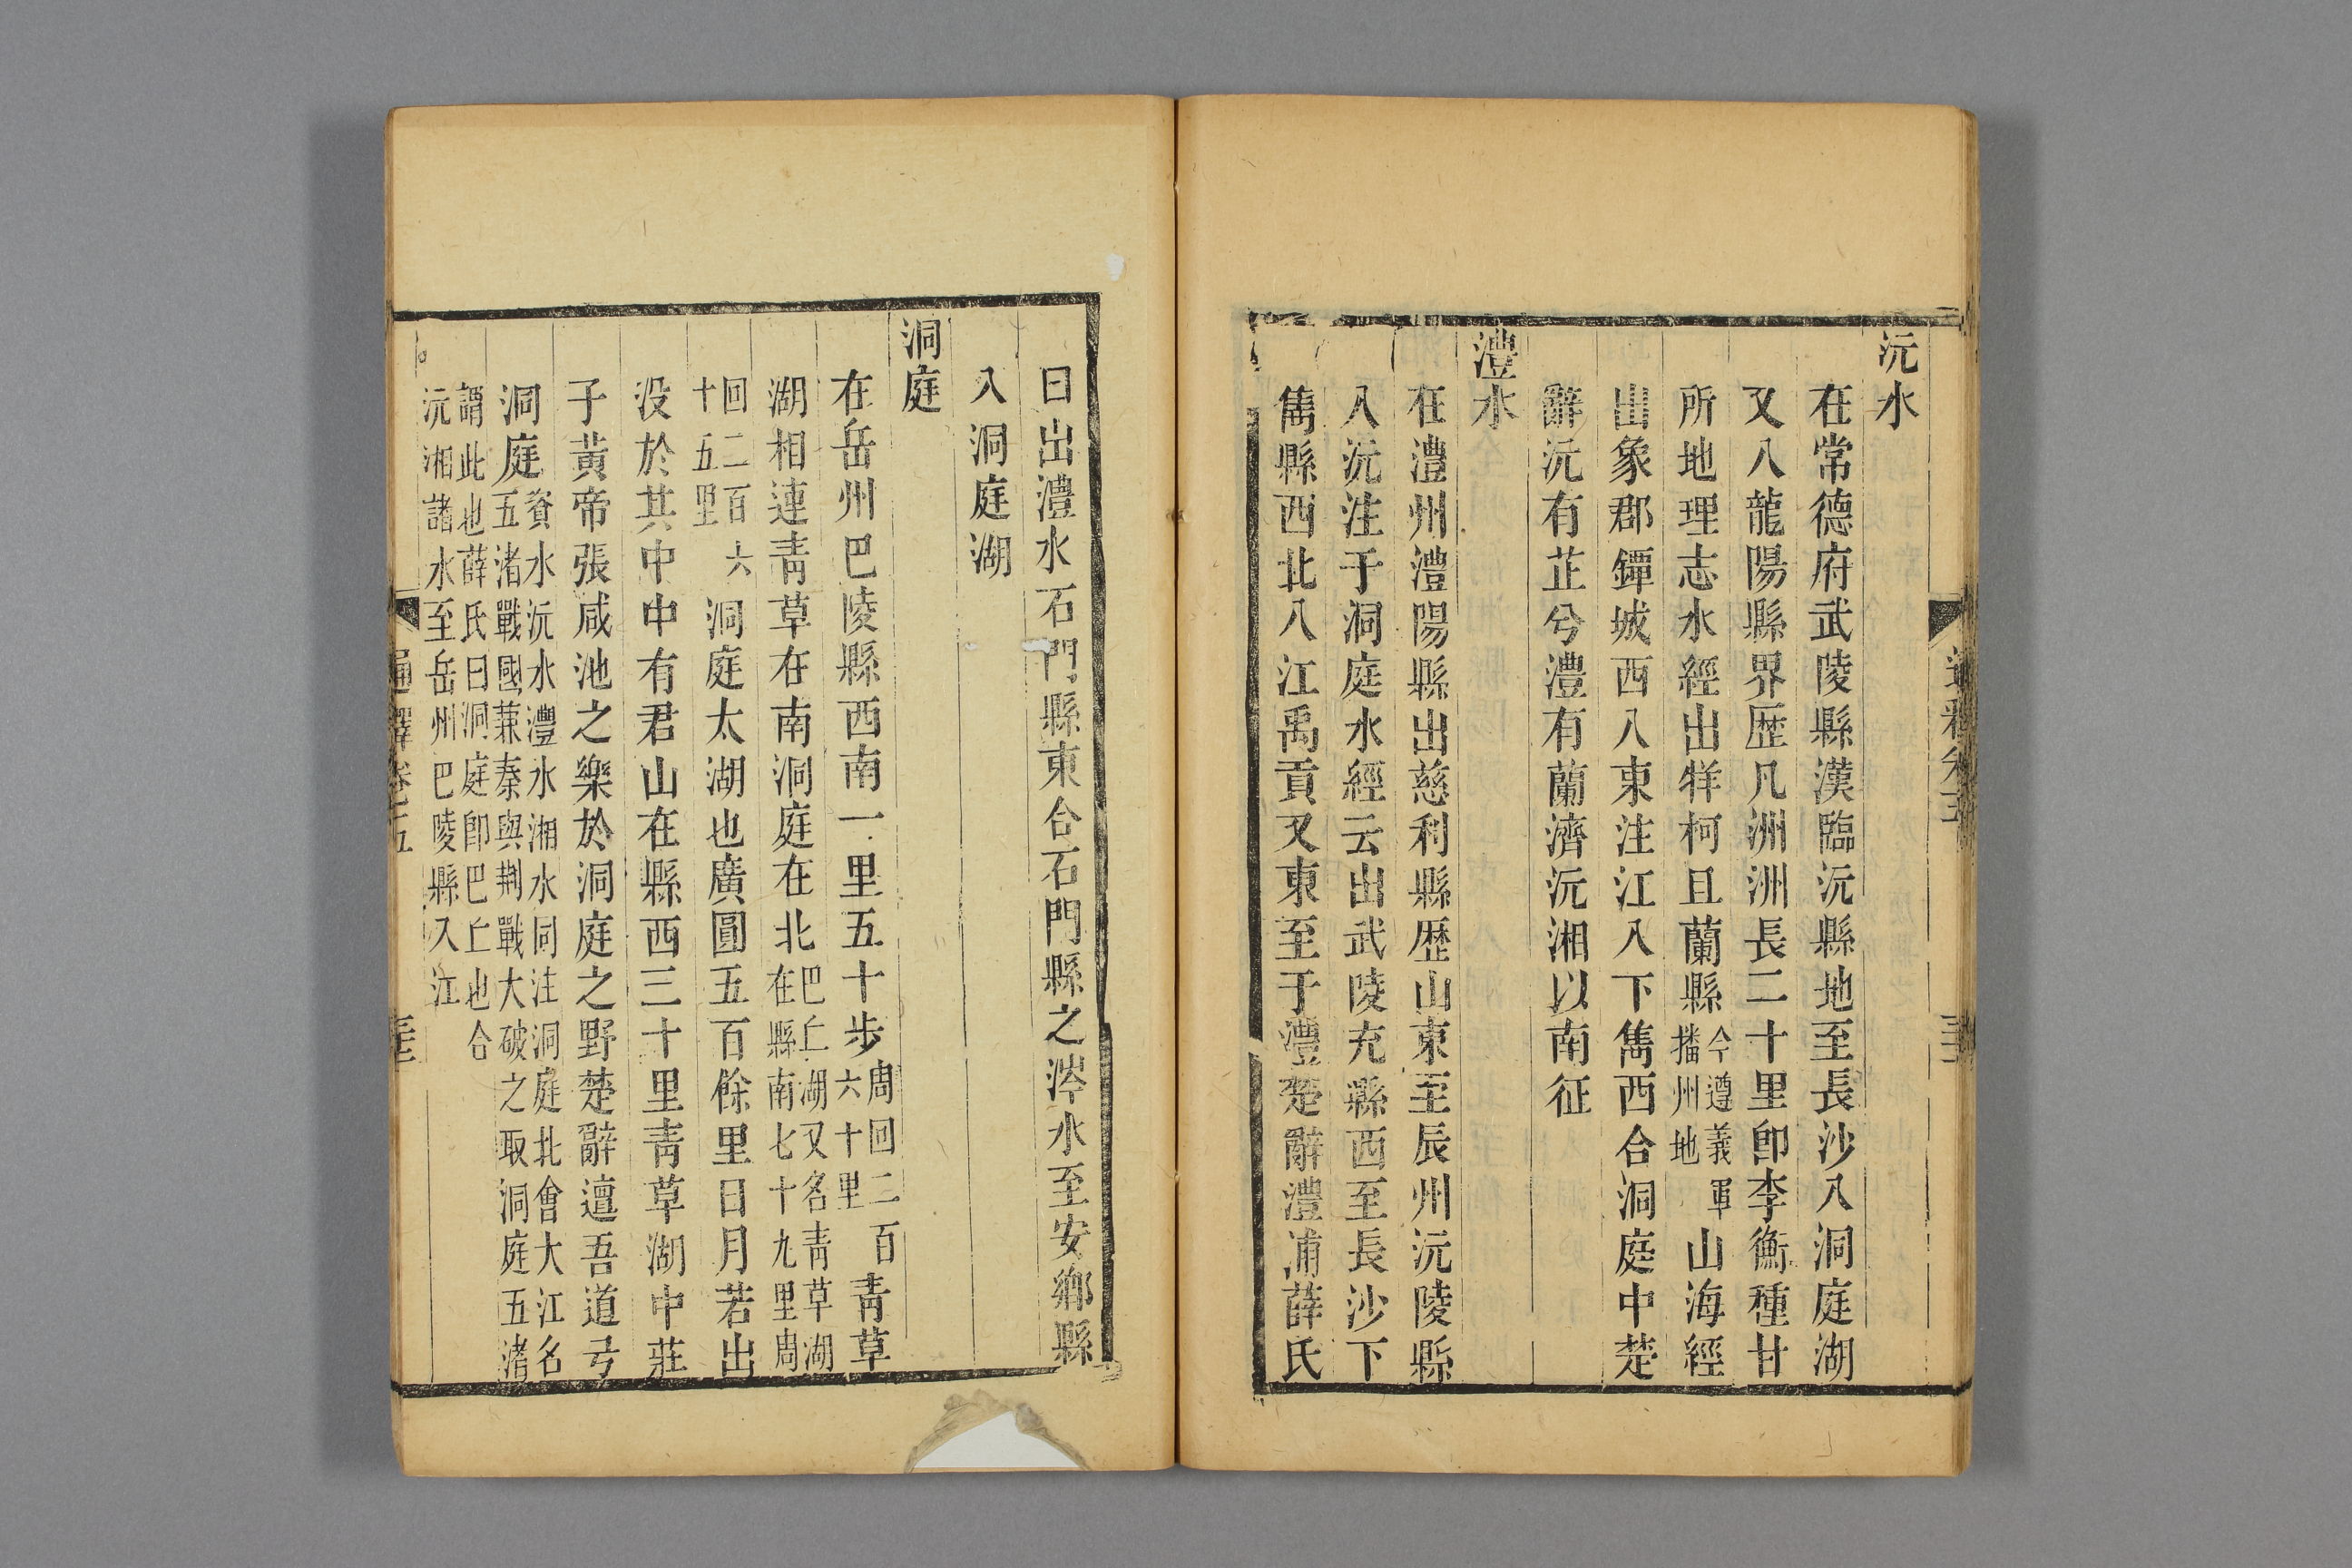 沅水
在常德府武陵縣漢臨沅縣地至長沙入洞庭湖
又八龍陽縣界歴凡洲洲長二十里卽李衡種甘
所地理志水經出牂柯且蘭縣今遵義軍播州地山海經
出象郡鐔城西入東注江入下雋西合洞庭中楚
辭沅有芷兮澧有蘭濟沅湘以南征
澧水
在澧州澧陽縣出慈利縣歴山東至辰州沅陵縣
入沅注于洞庭水經云出武陵充縣西至長沙下
雋縣西北入江禹貢又東至于澧楚辭澧浦薛氏
曰出澧水石門縣東合石門縣之涔水至安鄉縣
入洞庭湖
洞庭
在岳州巴陵縣西南一里五十步周回二百六十里青草
湖相連青草在南洞庭在北巴丘湖又名青草湖在縣南七十九里周
回二百六十五里洞庭太湖也廣圓五百餘里日月若出
没於其中中有君山在縣西三十里青草湖中莊
子黃帝張咸池之樂於洞庭之野楚辭邅吾道兮
洞庭資水沅水澧水湘水同注洞庭北會大江名五渚戰國䇿秦與荆戰大破之取洞庭五渚
謂此也薛氏曰洞庭卽巴丘也合沅湘諸水至岳州巴陵縣入江
通釋卷五